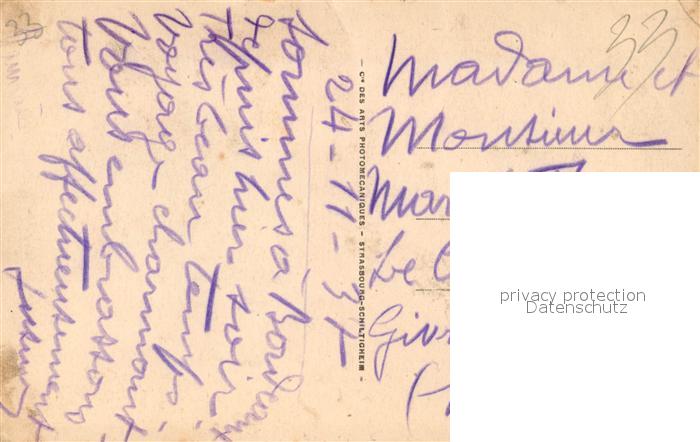 24-11-37
Sommes à Bordeaux
depuis hier soir.
Très beau temps.
Voyage charmant.
Vous embrassons
tous affectueusement
Cie DES ARTS PHOTOMÉCANIQUES - STRASBOURG-SCHILTIGHEIM
33
Madame et
Monsieur
Mar
Le
privacy protection
Datenschutz